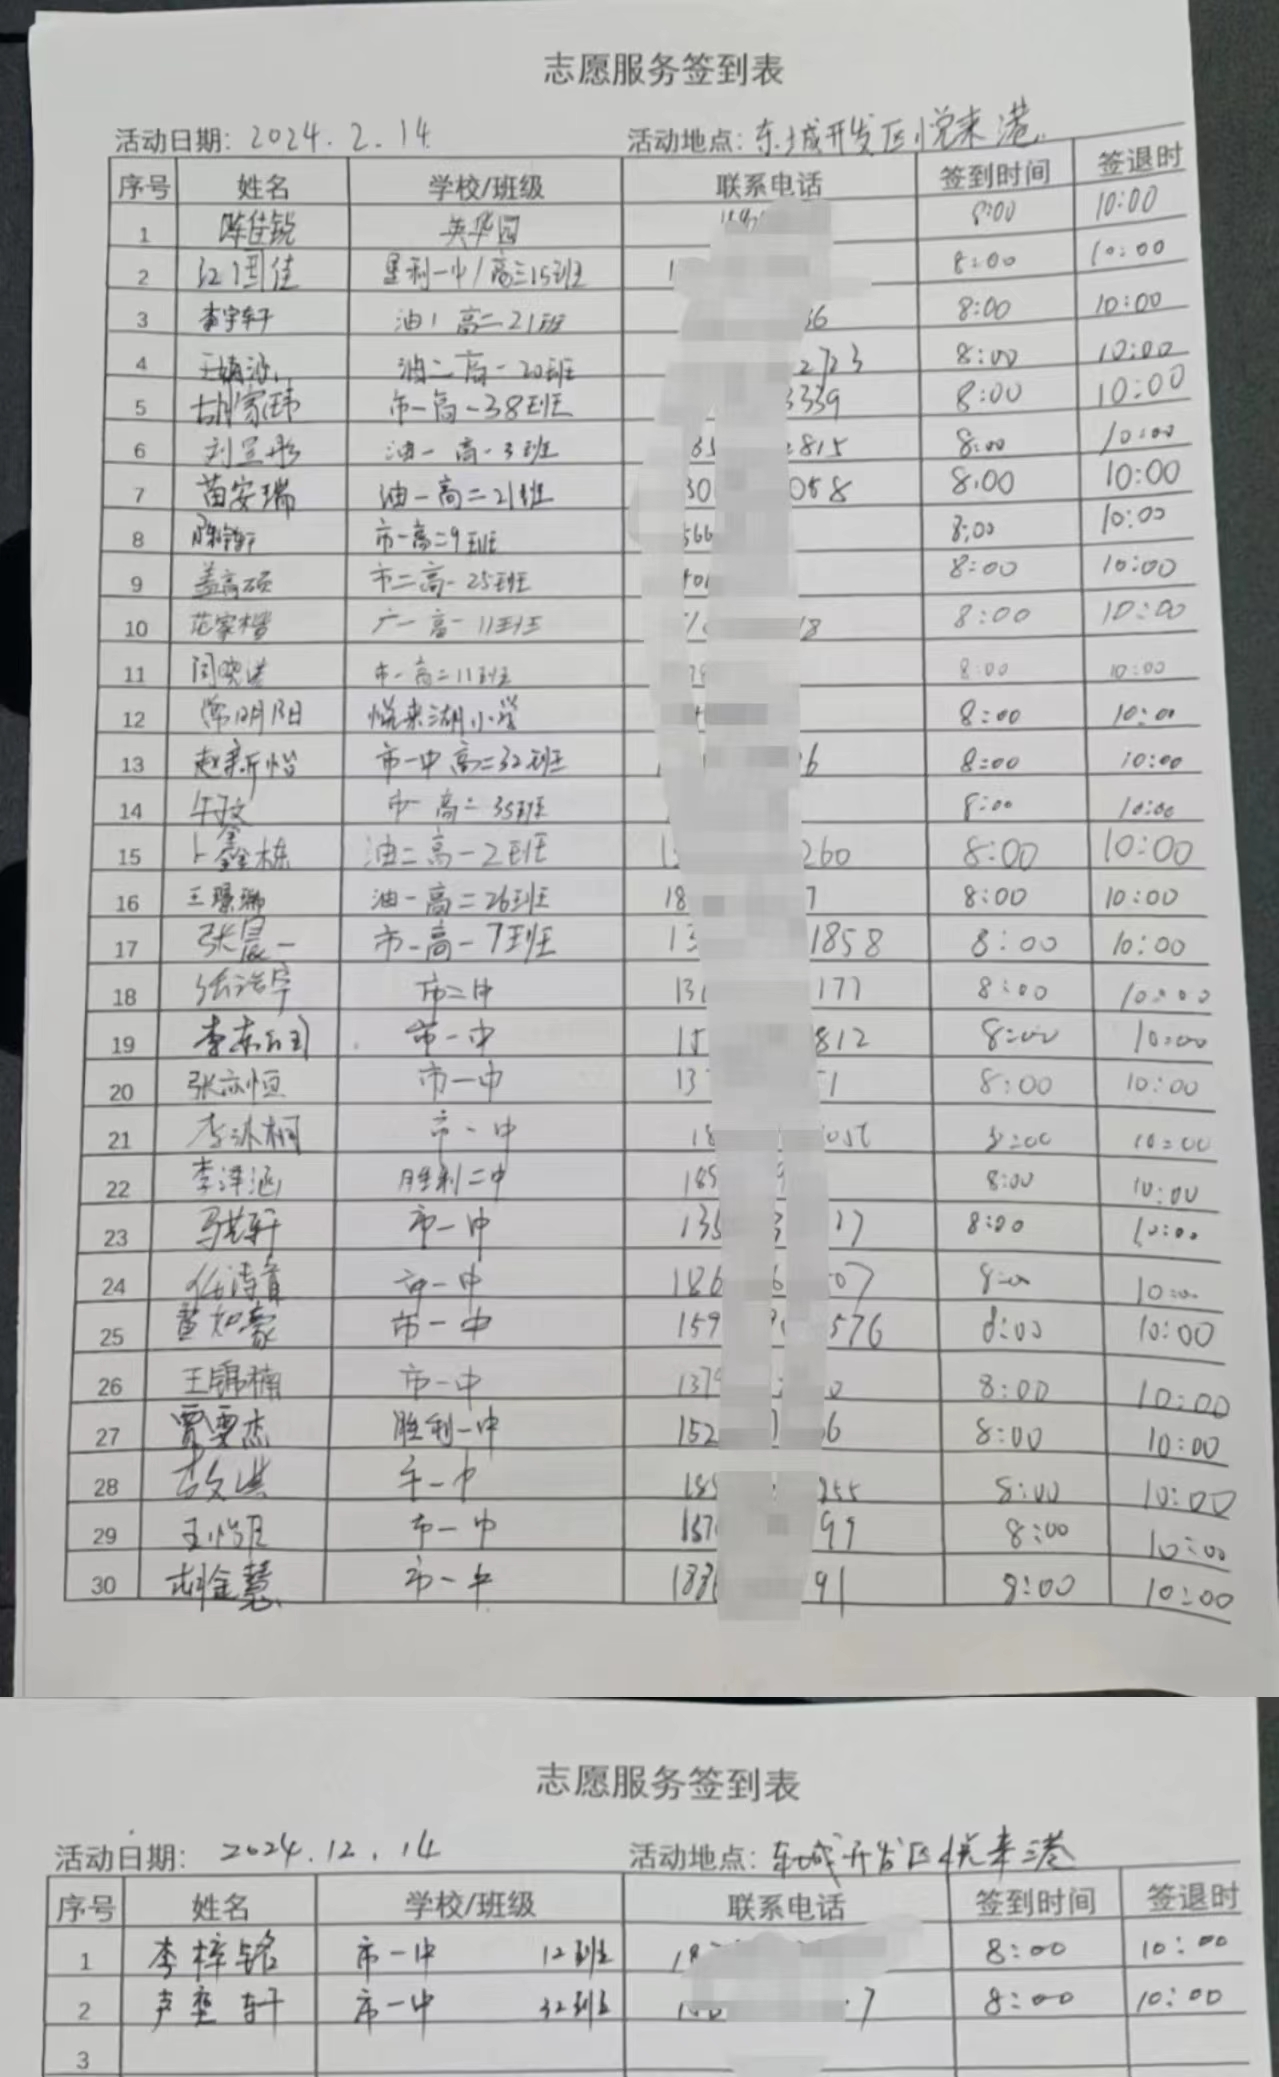 志愿服务签到表
活动日期: 2024.2.14 活动地点: 东城开发区悦来港
序号 姓名 学校/班级 联系电话 签到时间 签退时
1 陈佳锐 英华园 8:00 10:00
2 垦利一中/高三15班 8:00 10:00
3 李宇轩 油1高二21班 36 8:00 10:00
4 油二高一20班 2723 8:00 10:00
5 胡家玮 市一高一38班 3339 8:00 10:00
6 油一高一3班 2815 8:00 10:00
7 苗安瑞 油一高二21班 30 058 8:00 10:00
8 市一高二9班 566 8:00 10:00
9 盖高硕 市二高一25班 8:00 10:00
10 范家楷 广一高一11班 18 8:00 10:00
11 闫晓洪 市一高二11班 8:00 10:00
12 常明阳 悦来湖小学 8:00 10:00
13 赵新怡 市一中高二32班 6 8:00 10:00
14 牛玟 市一高二35班 8:00 10:00
15 卜鑫栋 油二高一2班 260 8:00 10:00
16 王璟瑞 油一高二26班 18 7 8:00 10:00
17 张晨一 市一高一7班 13 1858 8:00 10:00
18 张浩宇 市二中 13 177 8:00 10:00
19 市一中 15 812 8:00 10:00
20 张亦恒 市一中 13 51 8:00 10:00
21 李沐桐 市一中 18 8:00 10:00
22 李泽涵 胜利二中 185 9 8:00 10:00
23 马芸轩 市一中 135 3 27 8:00 10:00
24 市一中 186 6 07 8:00 10:00
25 市一中 159 576 8:00 10:00
26 王锦楠 市一中 137 0 8:00 10:00
27 贾雯杰 胜利一中 152 1 6 8:00 10:00
28 一中 185 255 8:00 10:00
29 王怡月 市一中 157 99 8:00 10:00
30 胡金慧 市一中 188 91 8:00 10:00
志愿服务签到表
活动日期: 2024.12.14 活动地点: 东城开发区悦来港
序号 姓名 学校/班级 联系电话 签到时间 签退时
1 李梓铭 市一中 12班 18 8:00 10:00
2 芦奕轩 市一中 32班 7 8:00 10:00
3